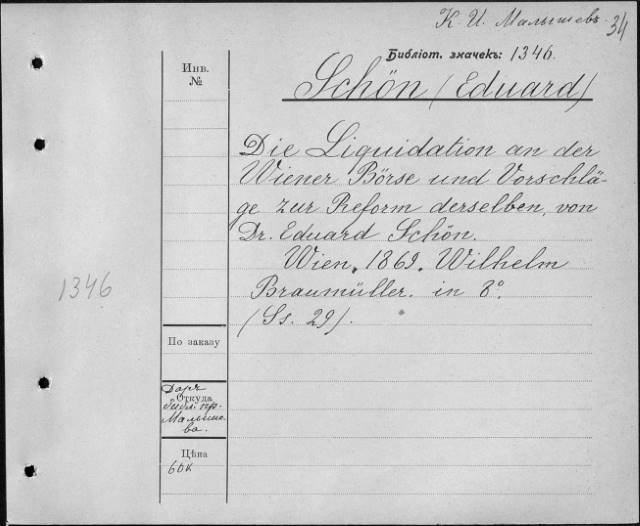 К. И. Малышевъ.
34
Библіот. значекъ: 1346.
Инв.
№
Schön (Eduard)
Die Liquidation an der
Wiener Börse und Vorschlä-
ge zur Reform derselben, von
Dr. Eduard Schön.
Wien, 1869. Wilhelm
Braumüller. in 8°.
(Ss. 29).
1346
По заказу
Даръ
Откуда
Малыше-
ва.
Цѣна
60к